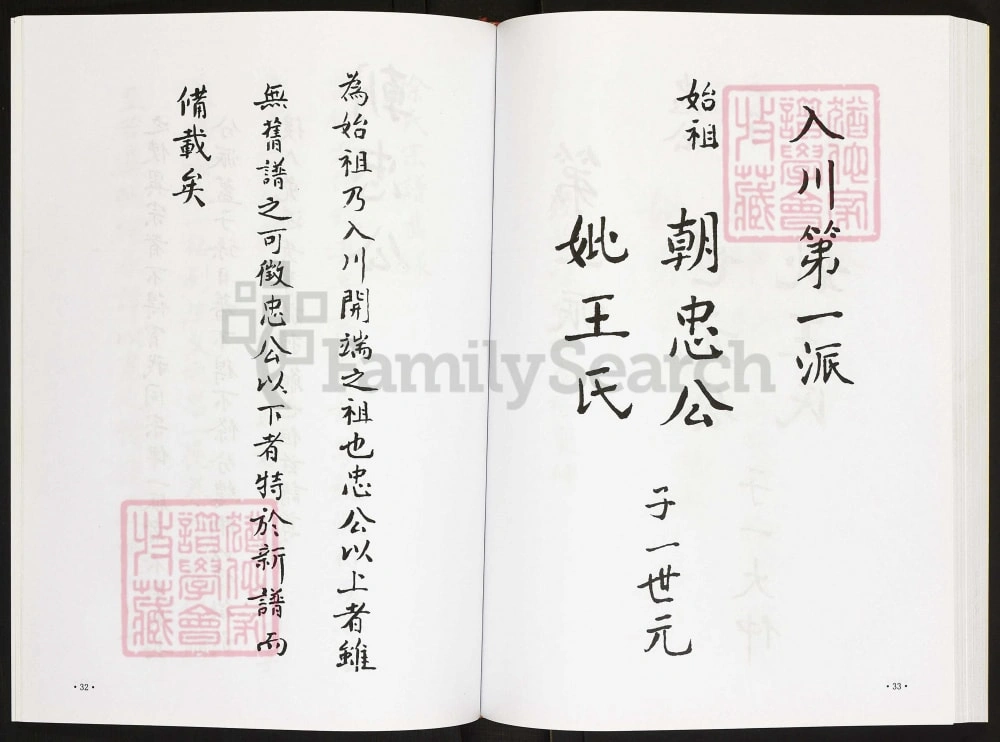 入川第一派
始祖 朝忠公 子一世元
妣王氏
為始祖乃入川開端之祖也忠公以上者雖
無舊譜之可徵忠公以下者特於新譜而
備載矣
譜學會
藏
譜學會
藏
FamilySearch
·32·
·33·